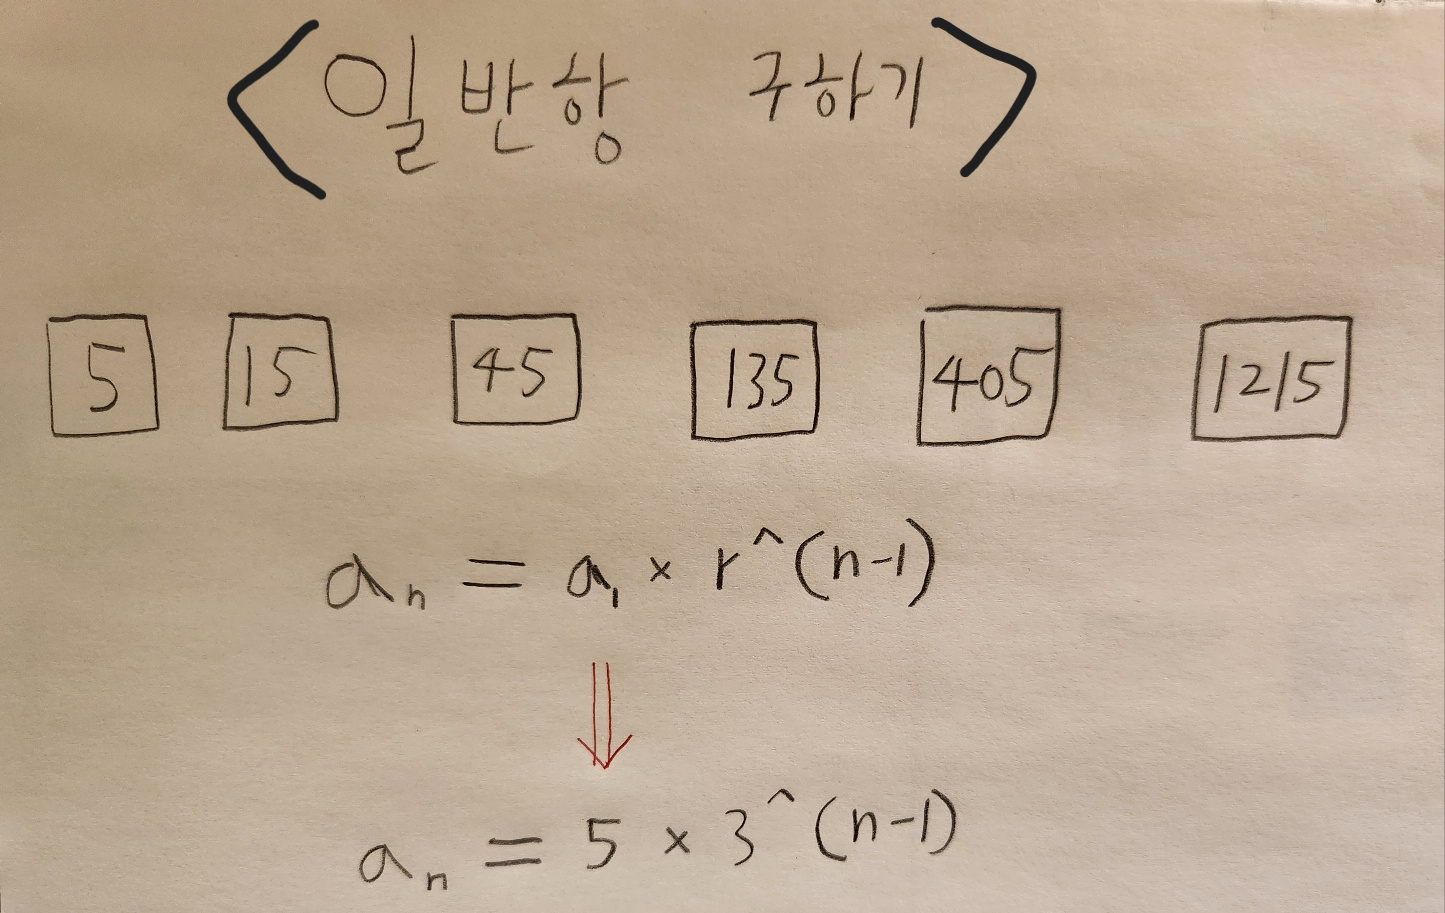 <일반항 구하기>
5 15 45 135 405 1215
aₙ = a₁ × r^(n-1)
aₙ = 5 × 3^(n-1)